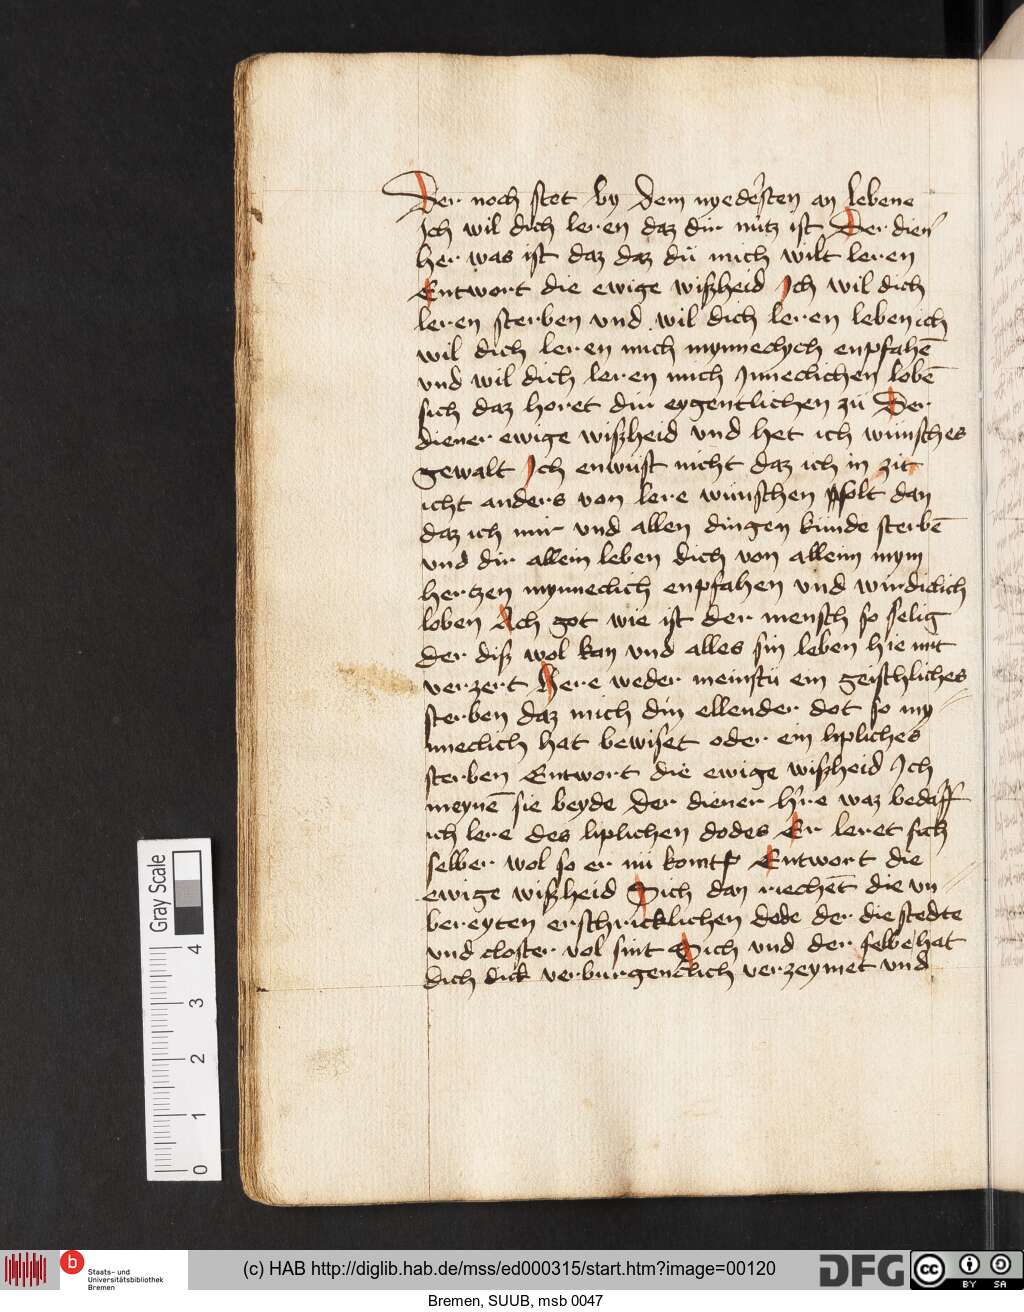 Der noch stet by dem nyedersten an lebene
Ich wil dich leren daz dir nutz ist Der dien
her was ist daz daz dü mich wilt leren
Entwort die ewige wißheid Ich wil dich
leren sterben vnd wil dich leren leben ich
wil dich leren mich mynnechych enpfahē
vnd wil dich leren mich Inneclichen lobē
sich daz horet dir eygentlichen zü Der
diener ewige wißheid vnd het ich wünsches
gewalt Ich enwüst nicht daz ich in zit
icht anders von lere wünschen solt dan
daz ich mir vnd allen dingen künde sterbē
vnd dir allein leben dich von allem mym
hertzen mynneclich enpfahen vnd wirdiclich
loben Ach got wie ist der mensch so selig
der diß wol kan vnd alles sin leben hie mit
verzert Here weder meinstü ein geistliches
sterben daz mich din ellender dot so my
nneclich hat bewiset oder ein lipliches
sterben Entwort die ewige wißheid Ich
meynē sie beyde Der diener h're waz bedarff
ich lere des liplichen dodes Er leret sich
selber wol so er nü komt Entwort die
ewige wißheid Sich dan riechet die vn
bereyten erschricklichen dode der die stedte
vnd closter vol sint Sich vnd der selbe hat
dich dick verburgenclich verzeymet vnd
Gray Scale
4
3
2
1
0
b
Staats- und
Universitätsbibliothek
Bremen
(c) HAB http://diglib.hab.de/mss/ed000315/start.htm?image=00120
DFG
cc
BY SA
Bremen, SUUB, msb 0047